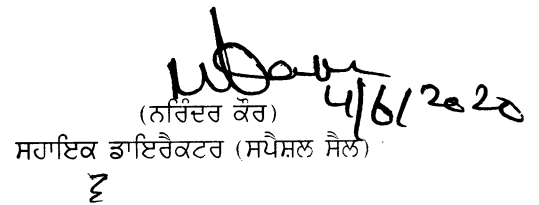 4/6/2020
(ਨਰਿੰਦਰ ਕੌਰ)
ਸਹਾਇਕ ਡਾਇਰੈਕਟਰ (ਸਪੈਸ਼ਲ ਸੈਲ)